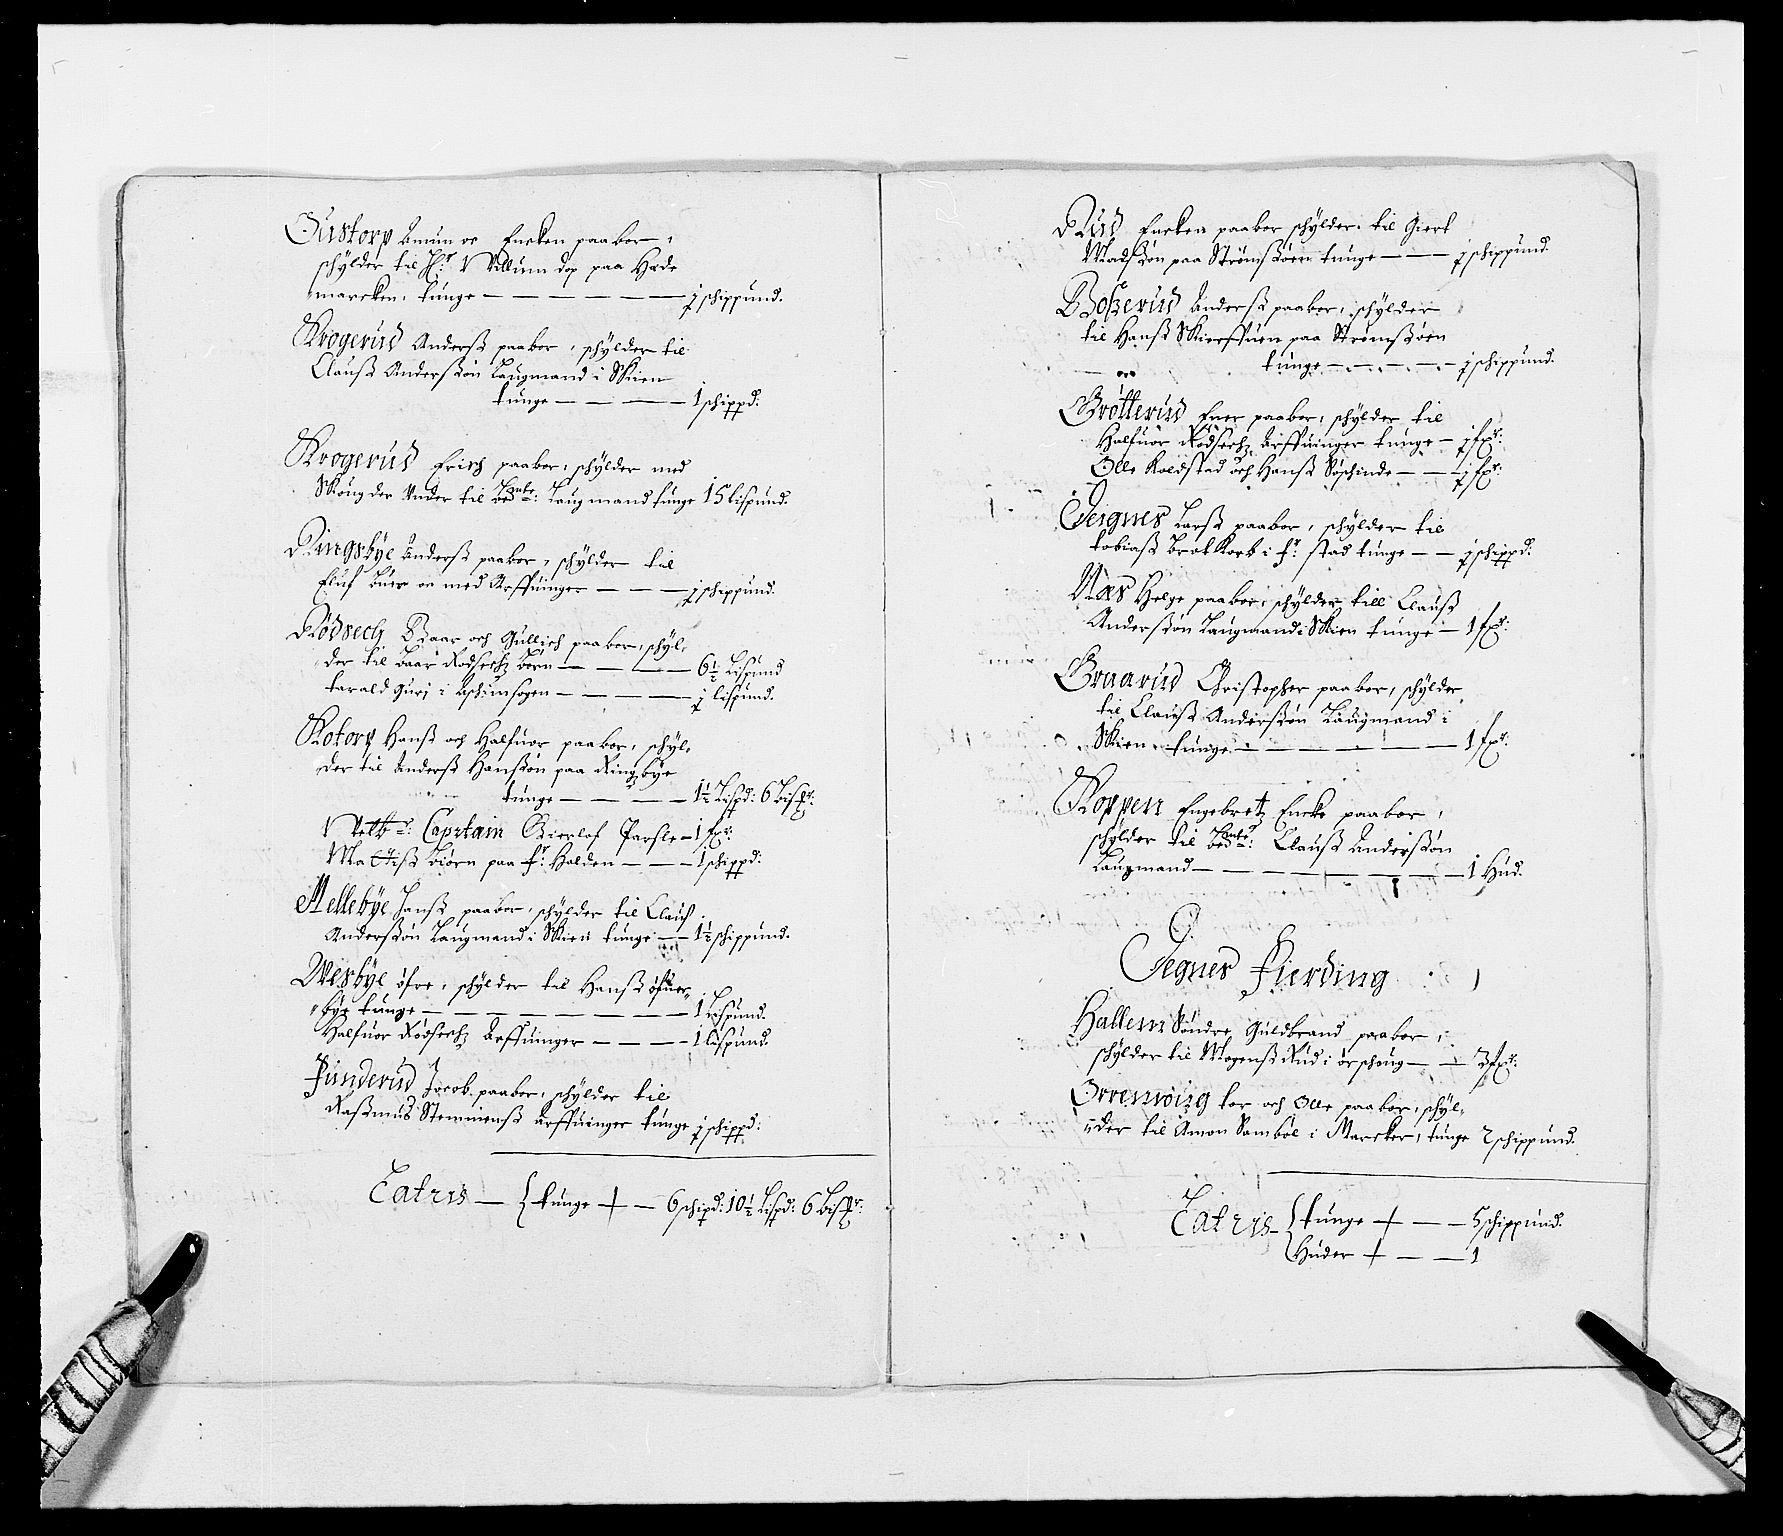 Gustorp Amun oc Encken paaboer,
schylder til Hr: Willum dop paa Hede
marcken, tunge — — — — — — — ½ schippund.
Krogerud Anderß paaboer, schylder til
Clauß Anderßön Laugmand i Skien
tunge — — — — — 1 schippd:
Krogerud Erich paaboer, schylder med
Skoug der Under til bedte: Laugmand tunge 15 lispund.
Ringsbye Anderß paaboer, schylder til
Eluf med Arffuinger — — — ½ schippund.
Rödsech Baar och Gullich paaboer, schyl-
der til Baar Rodsechs Börn — — — 6½ Lispund
tarald Guri i Aschimsogen — — — — ½ lispund.
Kotorp Hanß och Halfuor paaboer, schyl-
der til Anderß Hanßön paa Ringsbye
tunge — — — — 1½ Lispd: 6 Bispr:
Welbr: Capitain Bierlof Parsle — 1 fxr:
Mattiß Biörn paa fr: Halden — — — 1 schippd:
Mellebye Hanß paaboer, schylder til Clauß
Anderßön Laugmand i Skien tunge — — 1½ schippund.
Wesbye öfre, schylder til Hanß öfuer-
bye tunge — — — — — — — — 1 Lispund.
Halfuor Rödsechs Arffuinger — — — — 1 lispund.
Funderud Jacob paaboer, schylder til
Raßmus Steninenß Arffuinger tunge ½ schippd:
Latris — { tunge + — 6 schipd: 10½ Lispd: 6 Bispr:
Rud Encken paaboer schylder, til Giert
Madßön paa Strömßöen tunge — — — ½ schippund.
Boßerud Anderß paaboer, schylder
til Hanß paa Strömßöen
tunge — — — — — ½ schippund.
Grötterud Ener paaboer, schylder til
Halfuor Rödsechs Arffuinger tunge — ½ fxr:
Olle Koldstad och Hanß — — ½ fxr:
Teignes Larß paaboer, schylder til
tobiaß Brotkorb i fr: stad tunge — — ½ schippd:
Næs Helge paaboer, schylder till Clauß
Anderßön Laugmand i Skien tunge — 1 fxr:
Gruarud Christopher paaboer, schylder
til Clauß Anderßön Laugmand i
Skien, tunge — — — — — — — 1 fxr:
Koppen Engebretz Encke paaboer,
schylder til bedte: Clauß Anderßön
Laugmand — — — — — — — — 1 Hud.
Tegnes Fierding
Hallem Söndre Guldbrand paaboer,
schylder til Mogenß Rud i örscheug — — 3 fxr:
Orremöing tor och Olle paaboer, schyl-
der til Amon Samböl i Marcker, tunge 2 schippund.
Latris — { tunge + — — 5 schippund.
Huder + — — 1